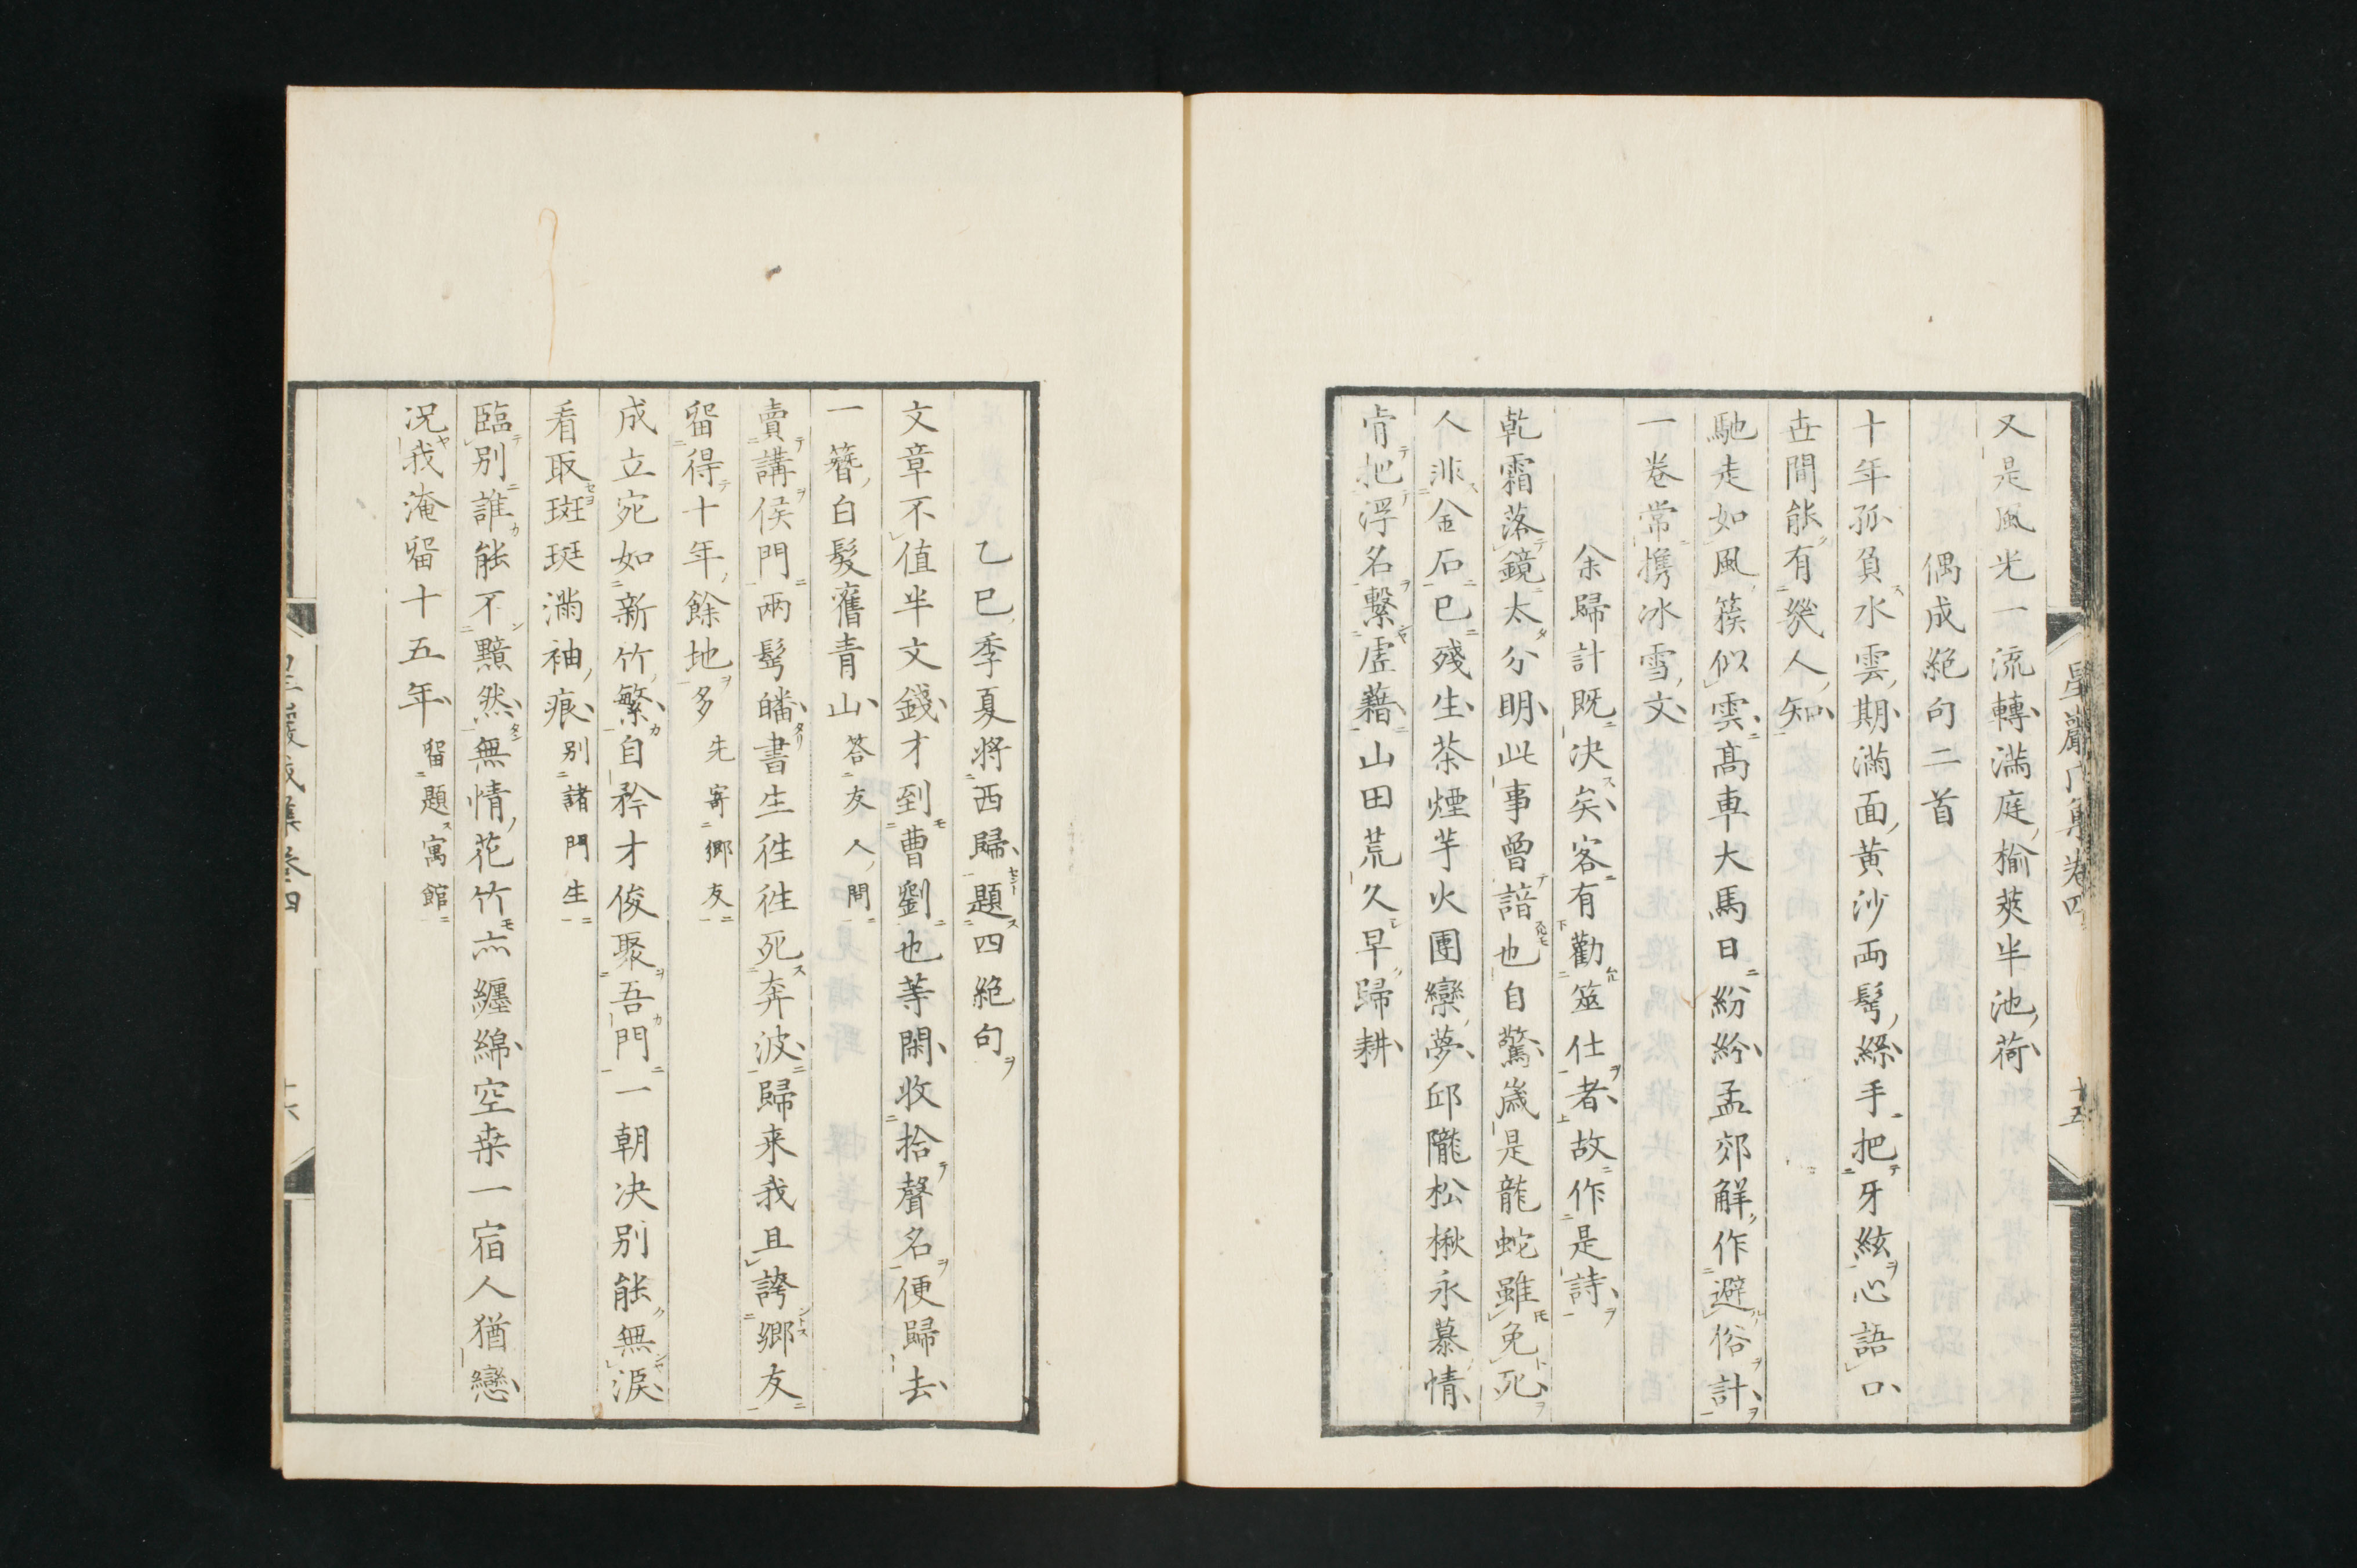 又是風光一流轉滿庭榆莢半池荷
偶成絕句二首
十年孤負水雲期滿面黃沙両鬂絲手把牙絃心語口
世間能有幾人知
馳走如風簇似雲高車大馬日紛紛孟郊解作避俗計
一卷常攜冰雪文
余歸計既决矣客有勸筮仕者故作是詩
乾霜落鏡太分明此事曾諳也自驚歲是龍蛇雖免死
人非金石已殘生茶煙芋火團欒夢邱隴松楸永慕情
肯把浮名繫虛藉山田荒久早歸耕
卷四
十五
乙巳季夏將西歸題四絕句
文章不值半文錢才到曹劉也等閑收拾聲名便歸去
一簪白髮舊青山答友人問
賣講侯門兩鬂皤書生徃徃死奔波歸来我且誇鄉友
留得十年餘地多先寄鄉友
成立宛如新竹繁自矜才俊聚吾門一朝决別能無淚
看取斑斑滿袖痕別諸門生
臨別誰能不黯然無情花竹亦纏綿空桒一宿人猶戀
況我淹留十五年留題寓館